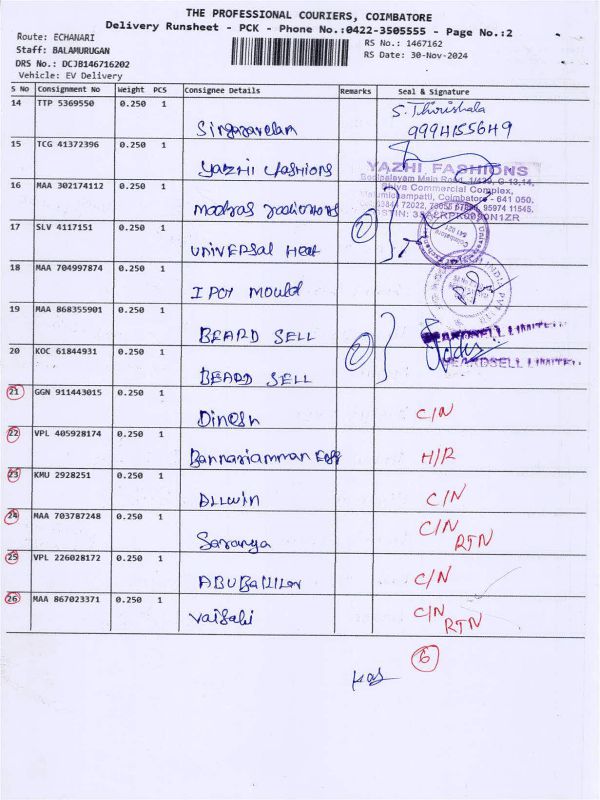 THE PROFESSIONAL COURIERS, COIMBATORE
Delivery Runsheet - PCK - Phone No.:0422-3505555 - Page No.:2
Route: ECHANARI
Staff: BALAMURUGAN
DRS No.: DCJB146716202
Vehicle: EV Delivery
RS No.: 1467162
RS Date: 30-Nov-2024
S No Consignment No Weight PCS Consignee Details Remarks Seal & Signature
14 TTP 5369550 0.250 1 S. Thirishala
Singaravelam 9994155649
15 TCG 41372396 0.250 1
Yazhi fashions YAZHI FASHIONS
16 MAA 302174112 0.250 1
Madras 2
17 SLV 4117151 0.250 1
UNIVERSAL Heat
18 MAA 704997874 0.250 1
IPCY Mould
19 MAA 868355901 0.250 1
BEARD SELL BEARDSELL LIMITED
20 KOC 61844931 0.250 1 2
BEARD SELL BEARDSELL LIMITED
21 GGN 911443015 0.250 1
Dinesh C/N
22 VPL 405928174 0.250 1
Bannariamman Egg H/R
23 KMU 2928251 0.250 1
ALLwin C/N
24 MAA 703787248 0.250 1 C/N
Saranya RTN
25 VPL 226028172 0.250 1
C/N
26 MAA 867023371 0.250 1 C/N
Vaisali RTN
6